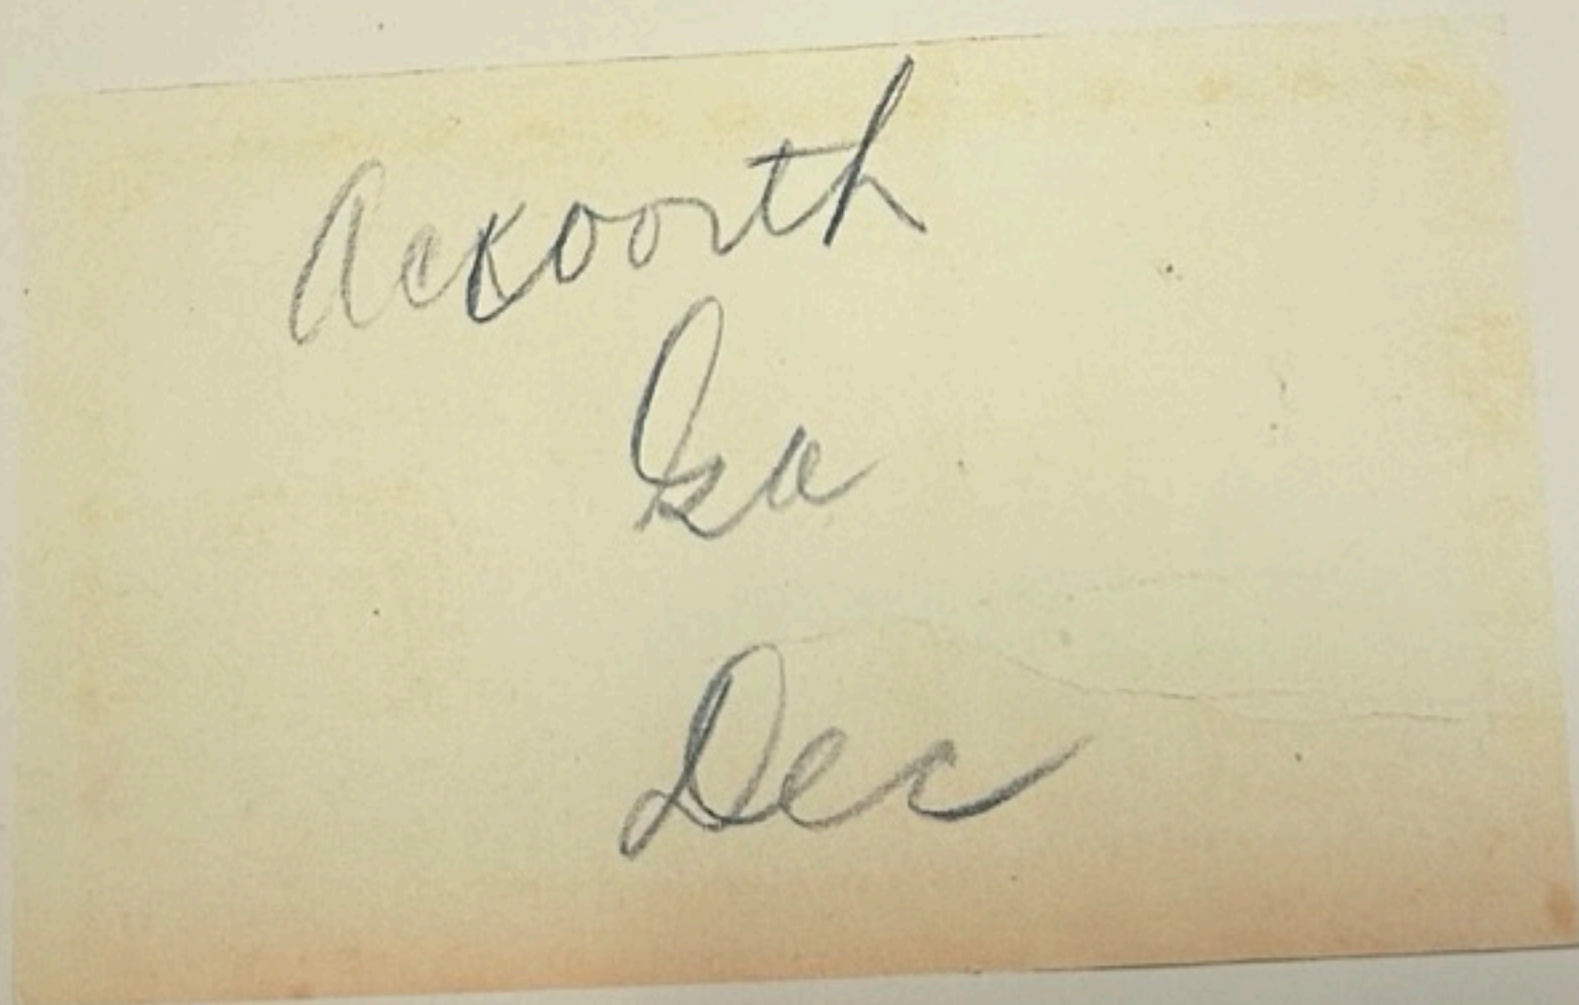 Ackworth
Ga
Dec